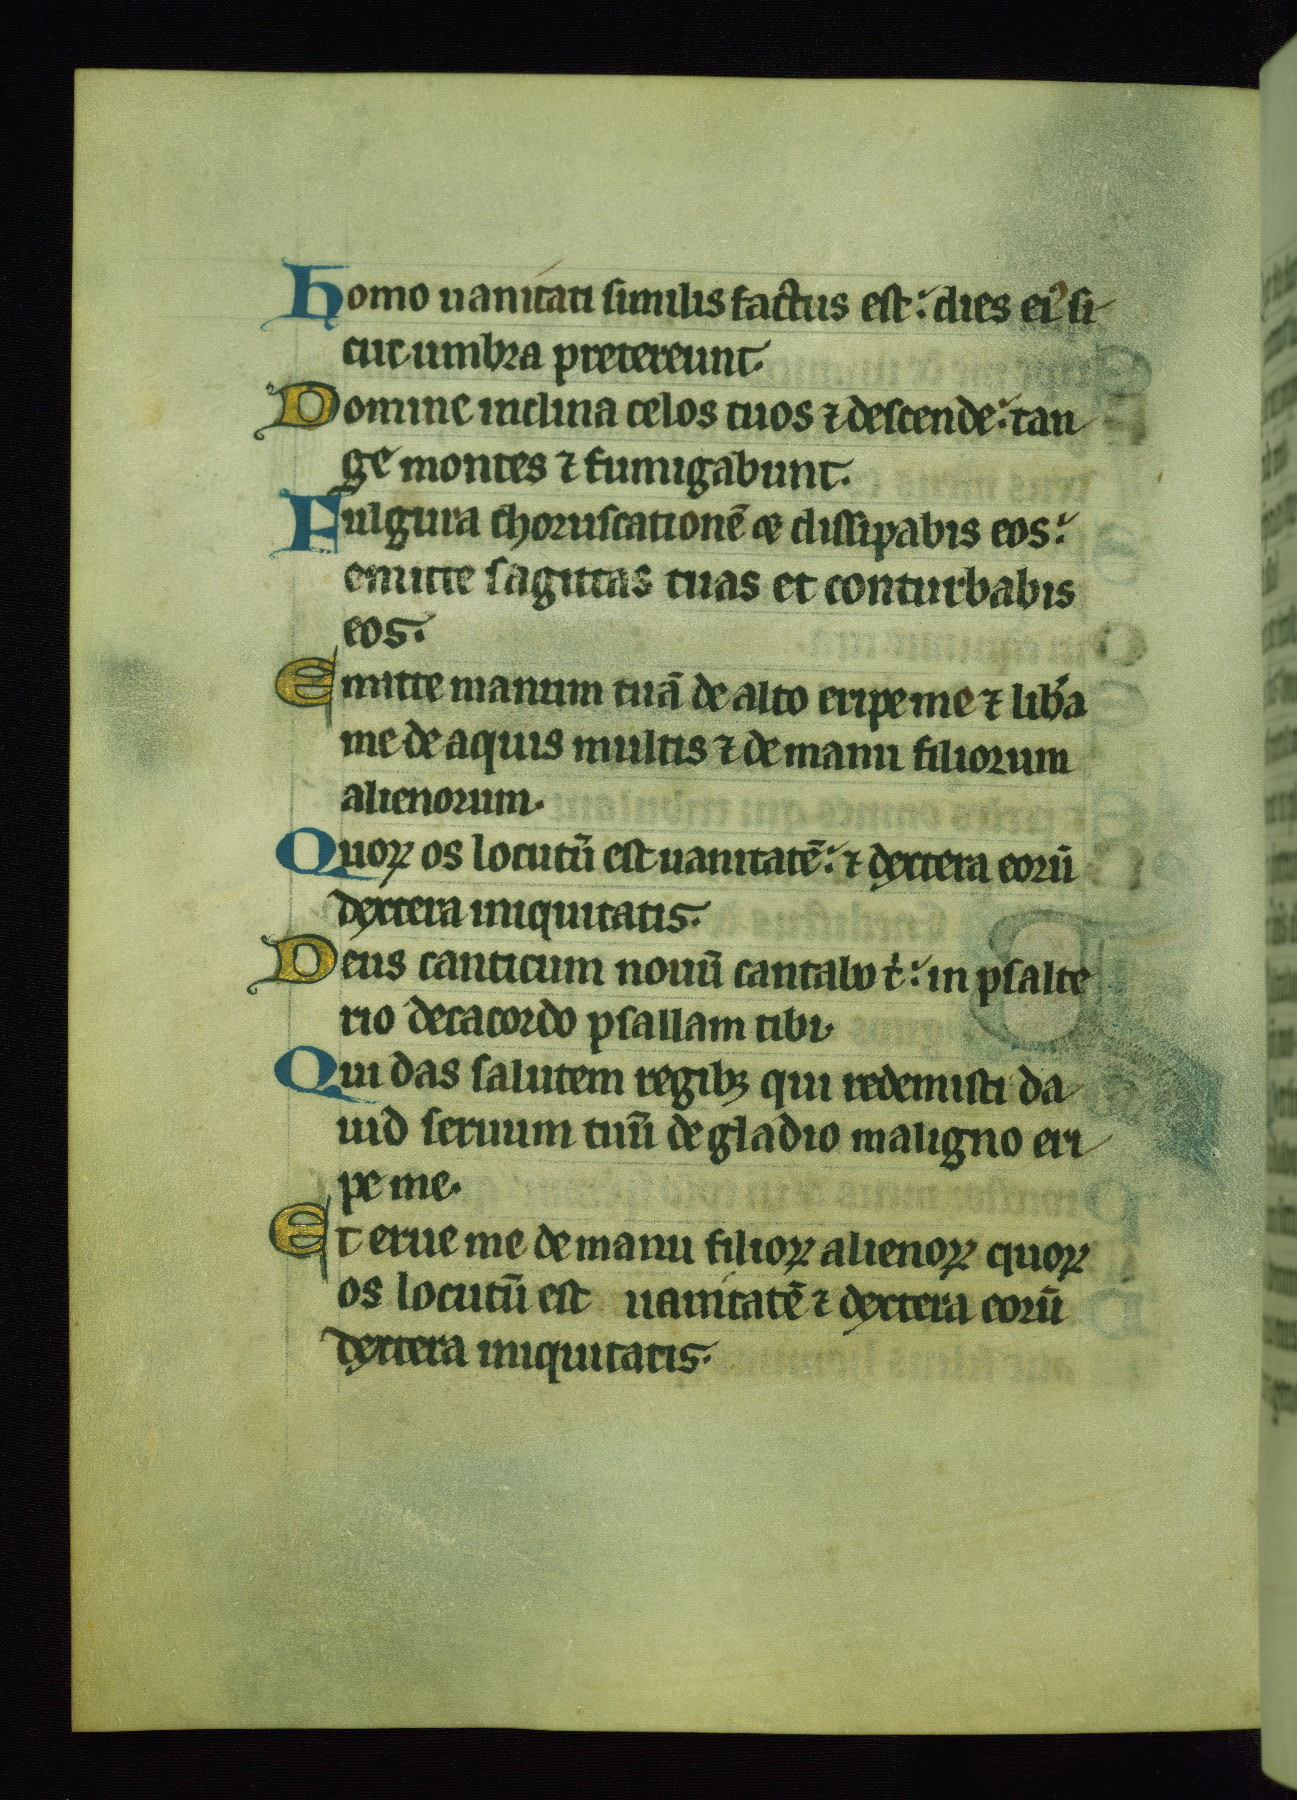 Homo uanitati similis factus est: dies ei⁹ si
cut umbra pretereunt.
Domine inclina celos tuos ⁊ descende: tan
ge montes ⁊ fumigabunt.
Fulgura choruscationē ⁊ dissipabis eos:
emitte sagittas tuas et conturbabis
eos.
Emitte manum tuā de alto eripe me ⁊ lib̾a
me de aquis multis ⁊ de manu filiorum
alienorum.
Quoꝝ os locutū est uanitatē: ⁊ dextera eorū
dextera iniquitatis.
Deus canticum nouū cantabo t̄: in psalte
rio decacordo psallam tibi.
Qui das salutem regibꝫ qui redemisti da
uid seruum tuū de gladio maligno eri
pe me.
Et erue me de manu filioꝝ alienoꝝ quoꝝ
os locutū est uanitatē ⁊ dextera eorū
dextera iniquitatis.